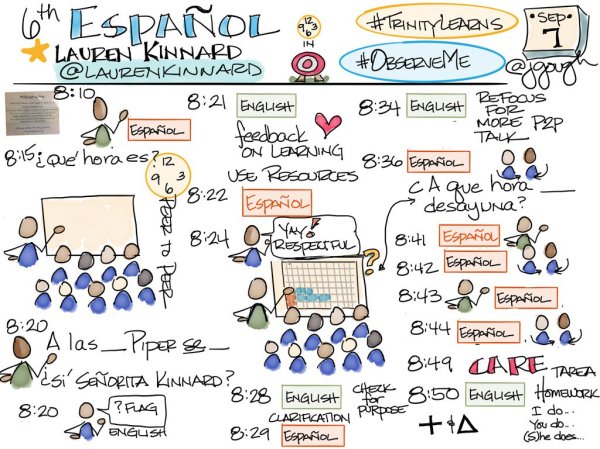 6th ESPAÑOL
LAUREN KINNARD
@LAURENKINNARD
12
9 3
6
IN
#TRINITYLEARNS
#OBSERVEME
SEP
7
@jgough
8:10
ESPAÑOL
8:15 ¿Qué hora es?
12
9 3
6
PEER TO PEER
8:20
A las __ PIPER se __
¿Sí SEÑORITA KINNARD?
8:20
? FLAG
ENGLISH
8:21 ENGLISH
feedback
ON LEARNING
USE RESOURCES
8:22
ESPAÑOL
8:24
YAY!
RESPECTFUL
?
8:28 ENGLISH
CLARIFICATION
CHECK
for
PURPOSE
8:29 ESPAÑOL
8:34 ENGLISH
REFOCUS
FOR
MORE P2P
TALK
8:36 ESPAÑOL
¿A que hora __
desayuna?
8:41 ESPAÑOL
8:42 ESPAÑOL
8:43 ESPAÑOL
8:44 ESPAÑOL
8:49 CARE TAREA
8:50 ENGLISH HOMEWORK
I do...
You do...
(s)he does...
+ & Δ